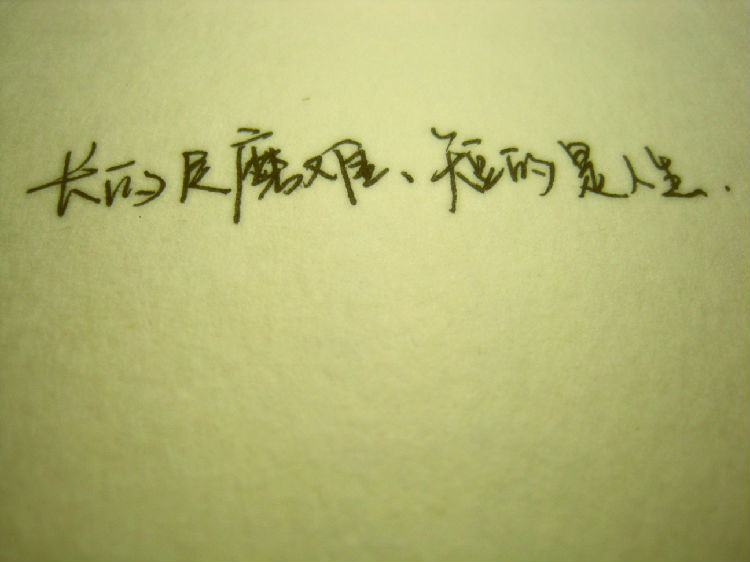 长的是磨难、短的是人生.